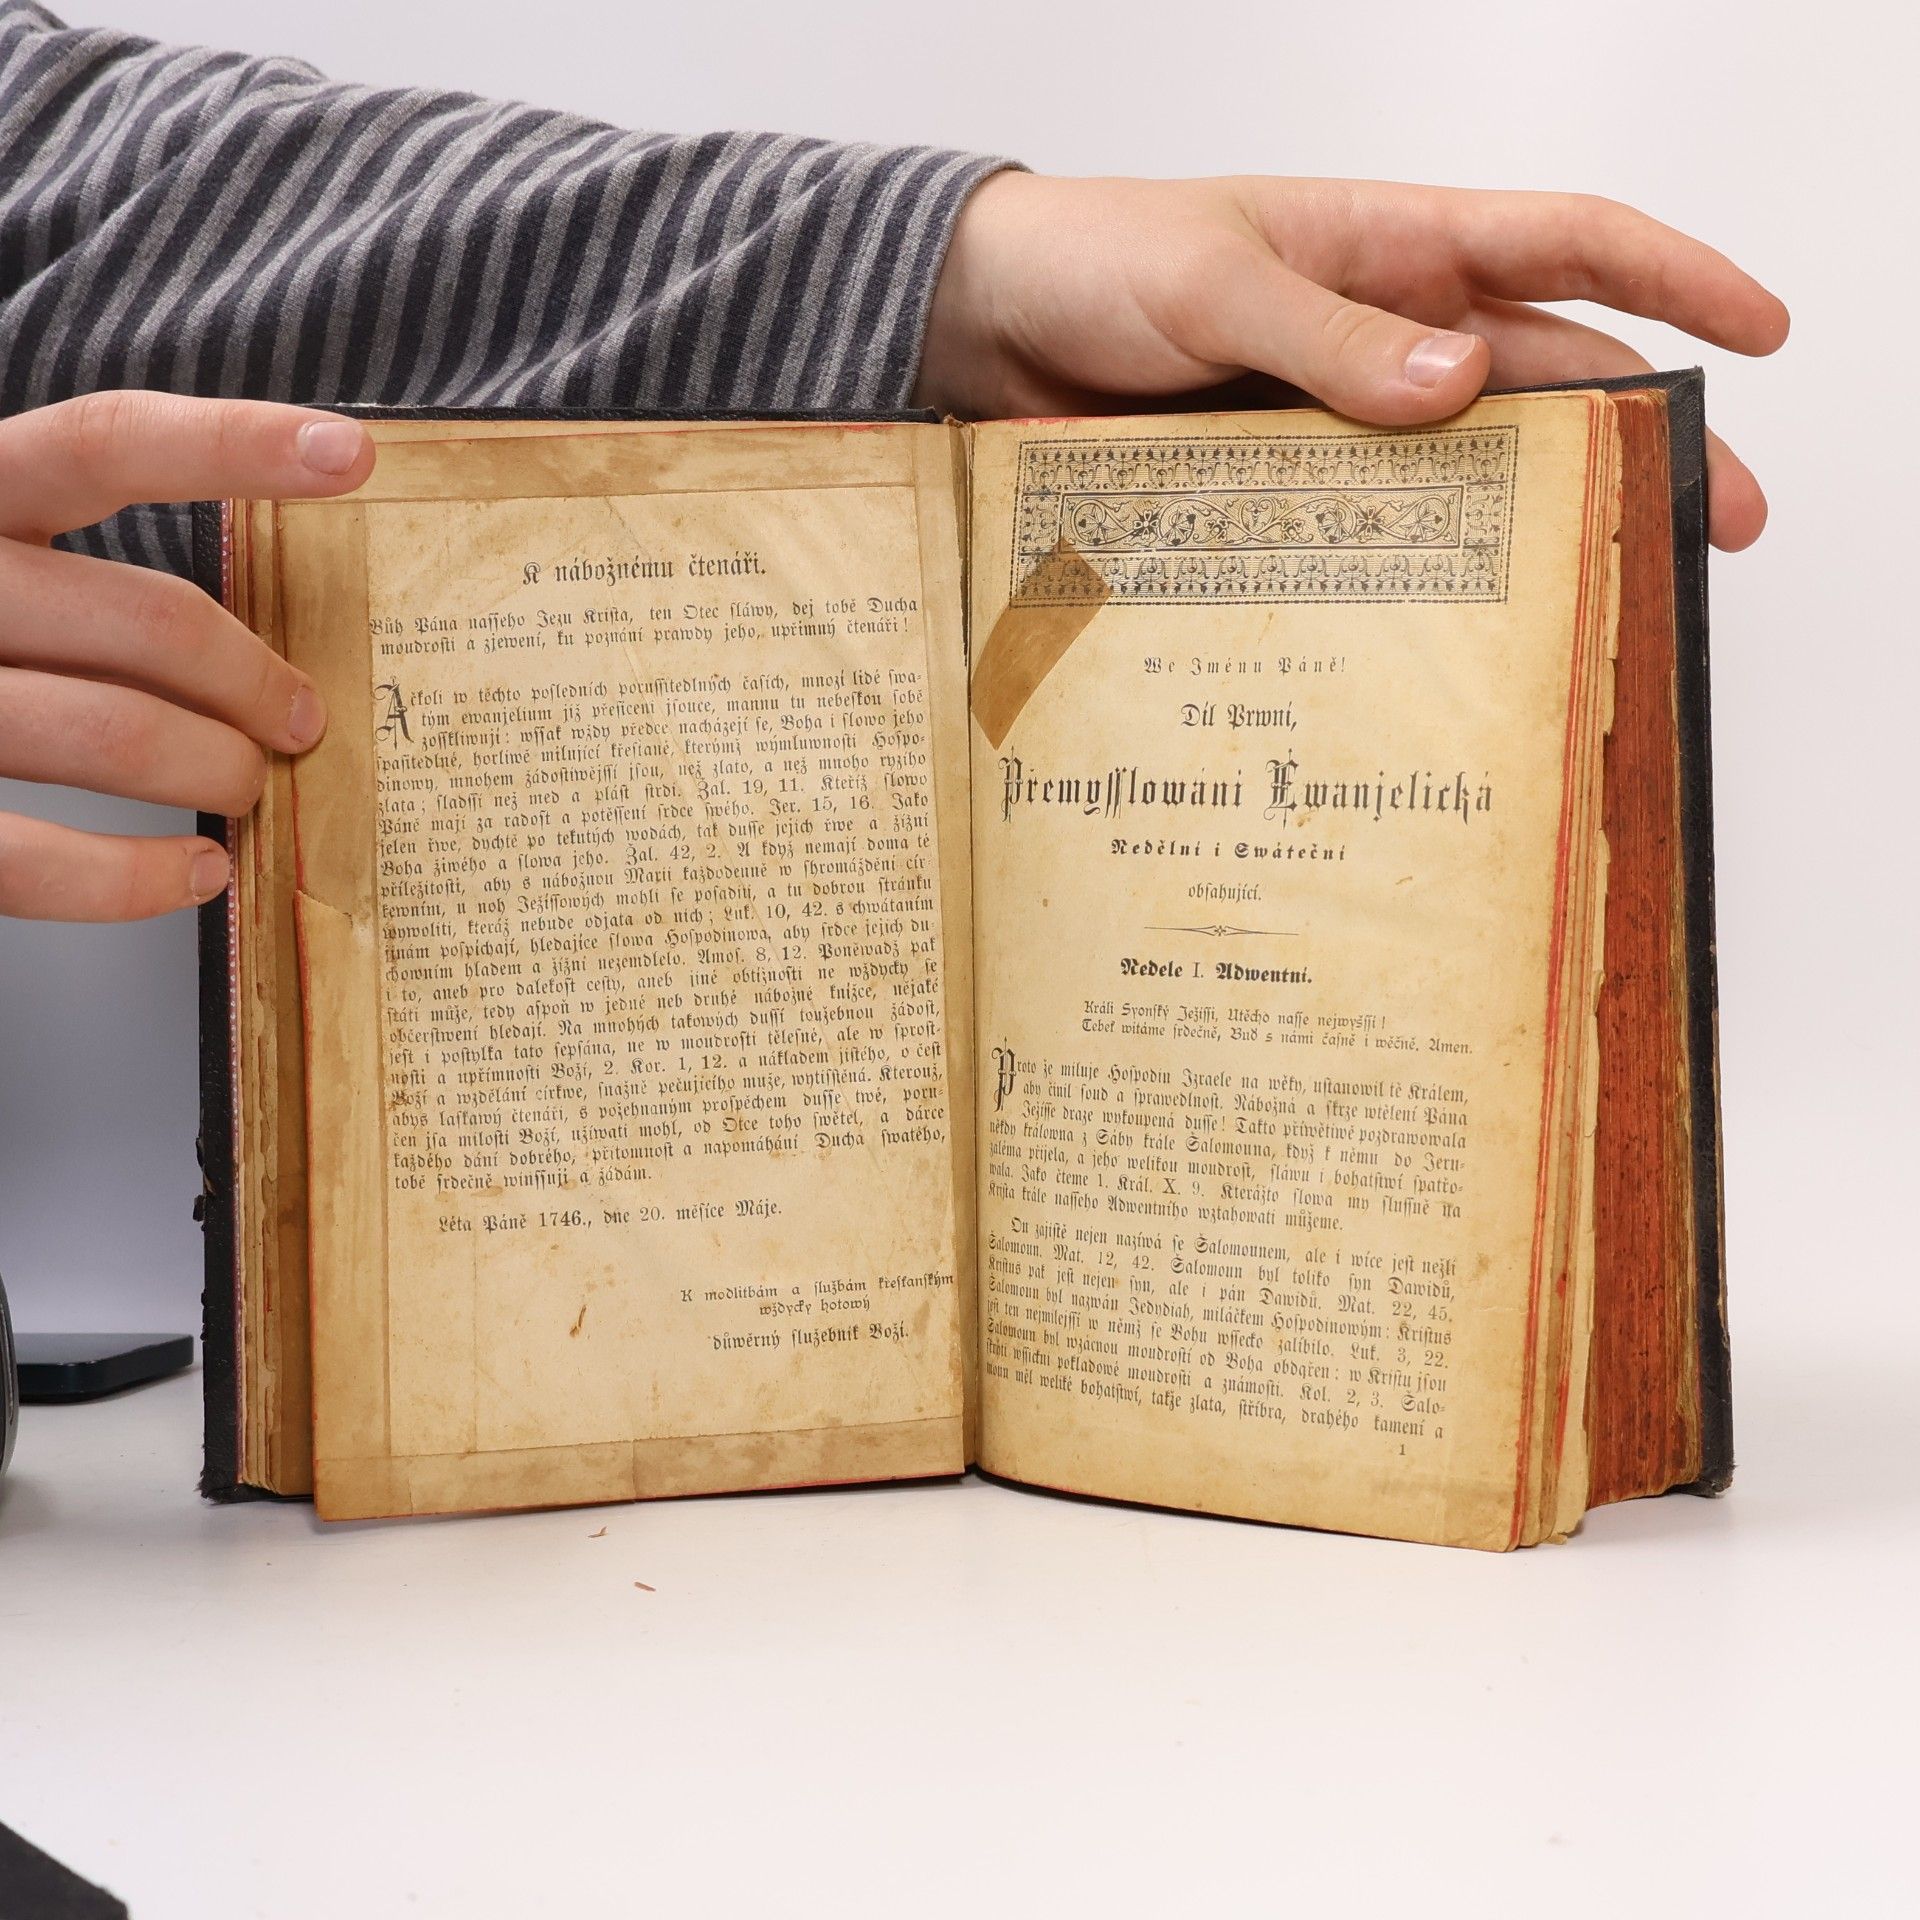 K nábožnému čtenáři.
Bůh Pána nasseho Jezu Krista, ten Otec sláwy, dej tobě Ducha
maudrosti a zjewení, ku poznání prawdy jeho, upřímný čtenáři!
Ačkoli w těchto posledních porussitedlných časích, mnozí lidé swa-
tým ewanjelium již přesiceni jsouce, mannu tu nebeskou sobě
zosskliwují: wssak wždy předce nacházejí se, Boha i slowo jeho
spasitedlné, horliwě milující křesťané, kterýmž wýmluwnosti Hospo-
dinowy, mnohem žádostiwějssí jsou, než zlato, a než mnoho ryzího
zlata; sladssí než med a plást strdi. Žal. 19, 11. Kteříž slowo
Páně mají za radost a potěssení srdce swého. Jer. 15, 16. Jako
jelen řwe, dychtě po tekutých wodách, tak dusse jejich řwe a žízní
Boha žiwého a slowa jeho. Žal. 42, 2. A když nemají doma té
příležitosti, aby s nábožnou Marií každodenně w shromáždění cír-
kewním, u noh Ježíssowých mohli se posaditi, a tu dobrou stránku
wywoliti, kteráž nebude odjata od nich; Luk. 10, 42. s chwátaním
jinám pospíchají, hledajíce slowa Hospodinowa, aby srdce jejich du-
chowním hladem a žízní nezemdlelo. Amos. 8, 12. Poněwadž pak
i to, aneb pro dalekost cesty, aneb jiné obtížnosti ne wždycky se
státi může, tedy aspoň w jedné neb druhé nábožné knížce, nějaké
občerstwení hledají. Na mnohých takowých dussí toužebnou žádost,
jest i postylka tato sepsána, ne w moudrosti tělesné, ale w sprost-
nosti a upřímnosti Boží, 2. Kor. 1, 12. a nákladem jistého, o čest
Boží a wzdělání církwe, snažně pečujícího muže, wytisstěná. Kterouž,
abys laskawý čtenáři, s požehnaným prospěchem dusse twé, poru-
čen jsa milosti Boží, užíwati mohl, od Otce toho swětel, a dárce
každého dání dobrého, přítomnost a napomáhání Ducha swatého,
tobě srdečně winssuji a žádám.
Léta Páně 1746., dne 20. měsíce Máje.
K modlitbám a službám křesťanským
wždycky hotowý
důwěrný služebník Boží.
We Jménu Páně!
Díl Prwní,
Přemysslowání Ewanjelická
Nedělní i Swáteční
obsahující.
Neděle I. Adwentní.
Králi Syonský Ježíssi, Utěcho nasse nejwyšší!
Tebeť wítáme srdečně, Buď s námi časně i wěčně. Amen.
Proto že miluje Hospodin Izraele na wěky, ustanowil tě Králem,
aby činil soud a sprawedlnost. Nábožná a skrze wtělení Pána
Ježísse draze wykoupená dusse! Takto přiwětiwě pozdrawowala
někdy králowna z Sáby krále Šalomouna, když k němu do Jeru-
záléma přijela, a jeho welikou moudrost, sláwu i bohatstwí spatřo-
wala. Jako čteme 1. Král. X. 9. Kterážto slowa my slussně na
Krista krále nasseho Adwentního wztahowati můžeme.
On zajistě nejen nazíwá se Šalomounem, ale i wíce jest nežli
Šalomoun. Mat. 12, 42. Šalomoun byl toliko syn Dawidů,
Kristus pak jest nejen syn, ale i pán Dawidů. Mat. 22, 45.
Šalomoun byl nazwán Jedydiah, miláčkem Hospodinowým: Kristus
jest ten nejmilejssí w němž se Bohu wssecko zalíbilo. Luk. 3, 22.
Šalomoun byl wzácnou moudrostí od Boha obdařen: w Kristu jsou
skrytí wssickni pokladowé moudrosti a známosti. Kol. 2, 3. Šalo-
moun měl weliké bohatstwí, takže zlata, stříbra, drahého kamení a
1